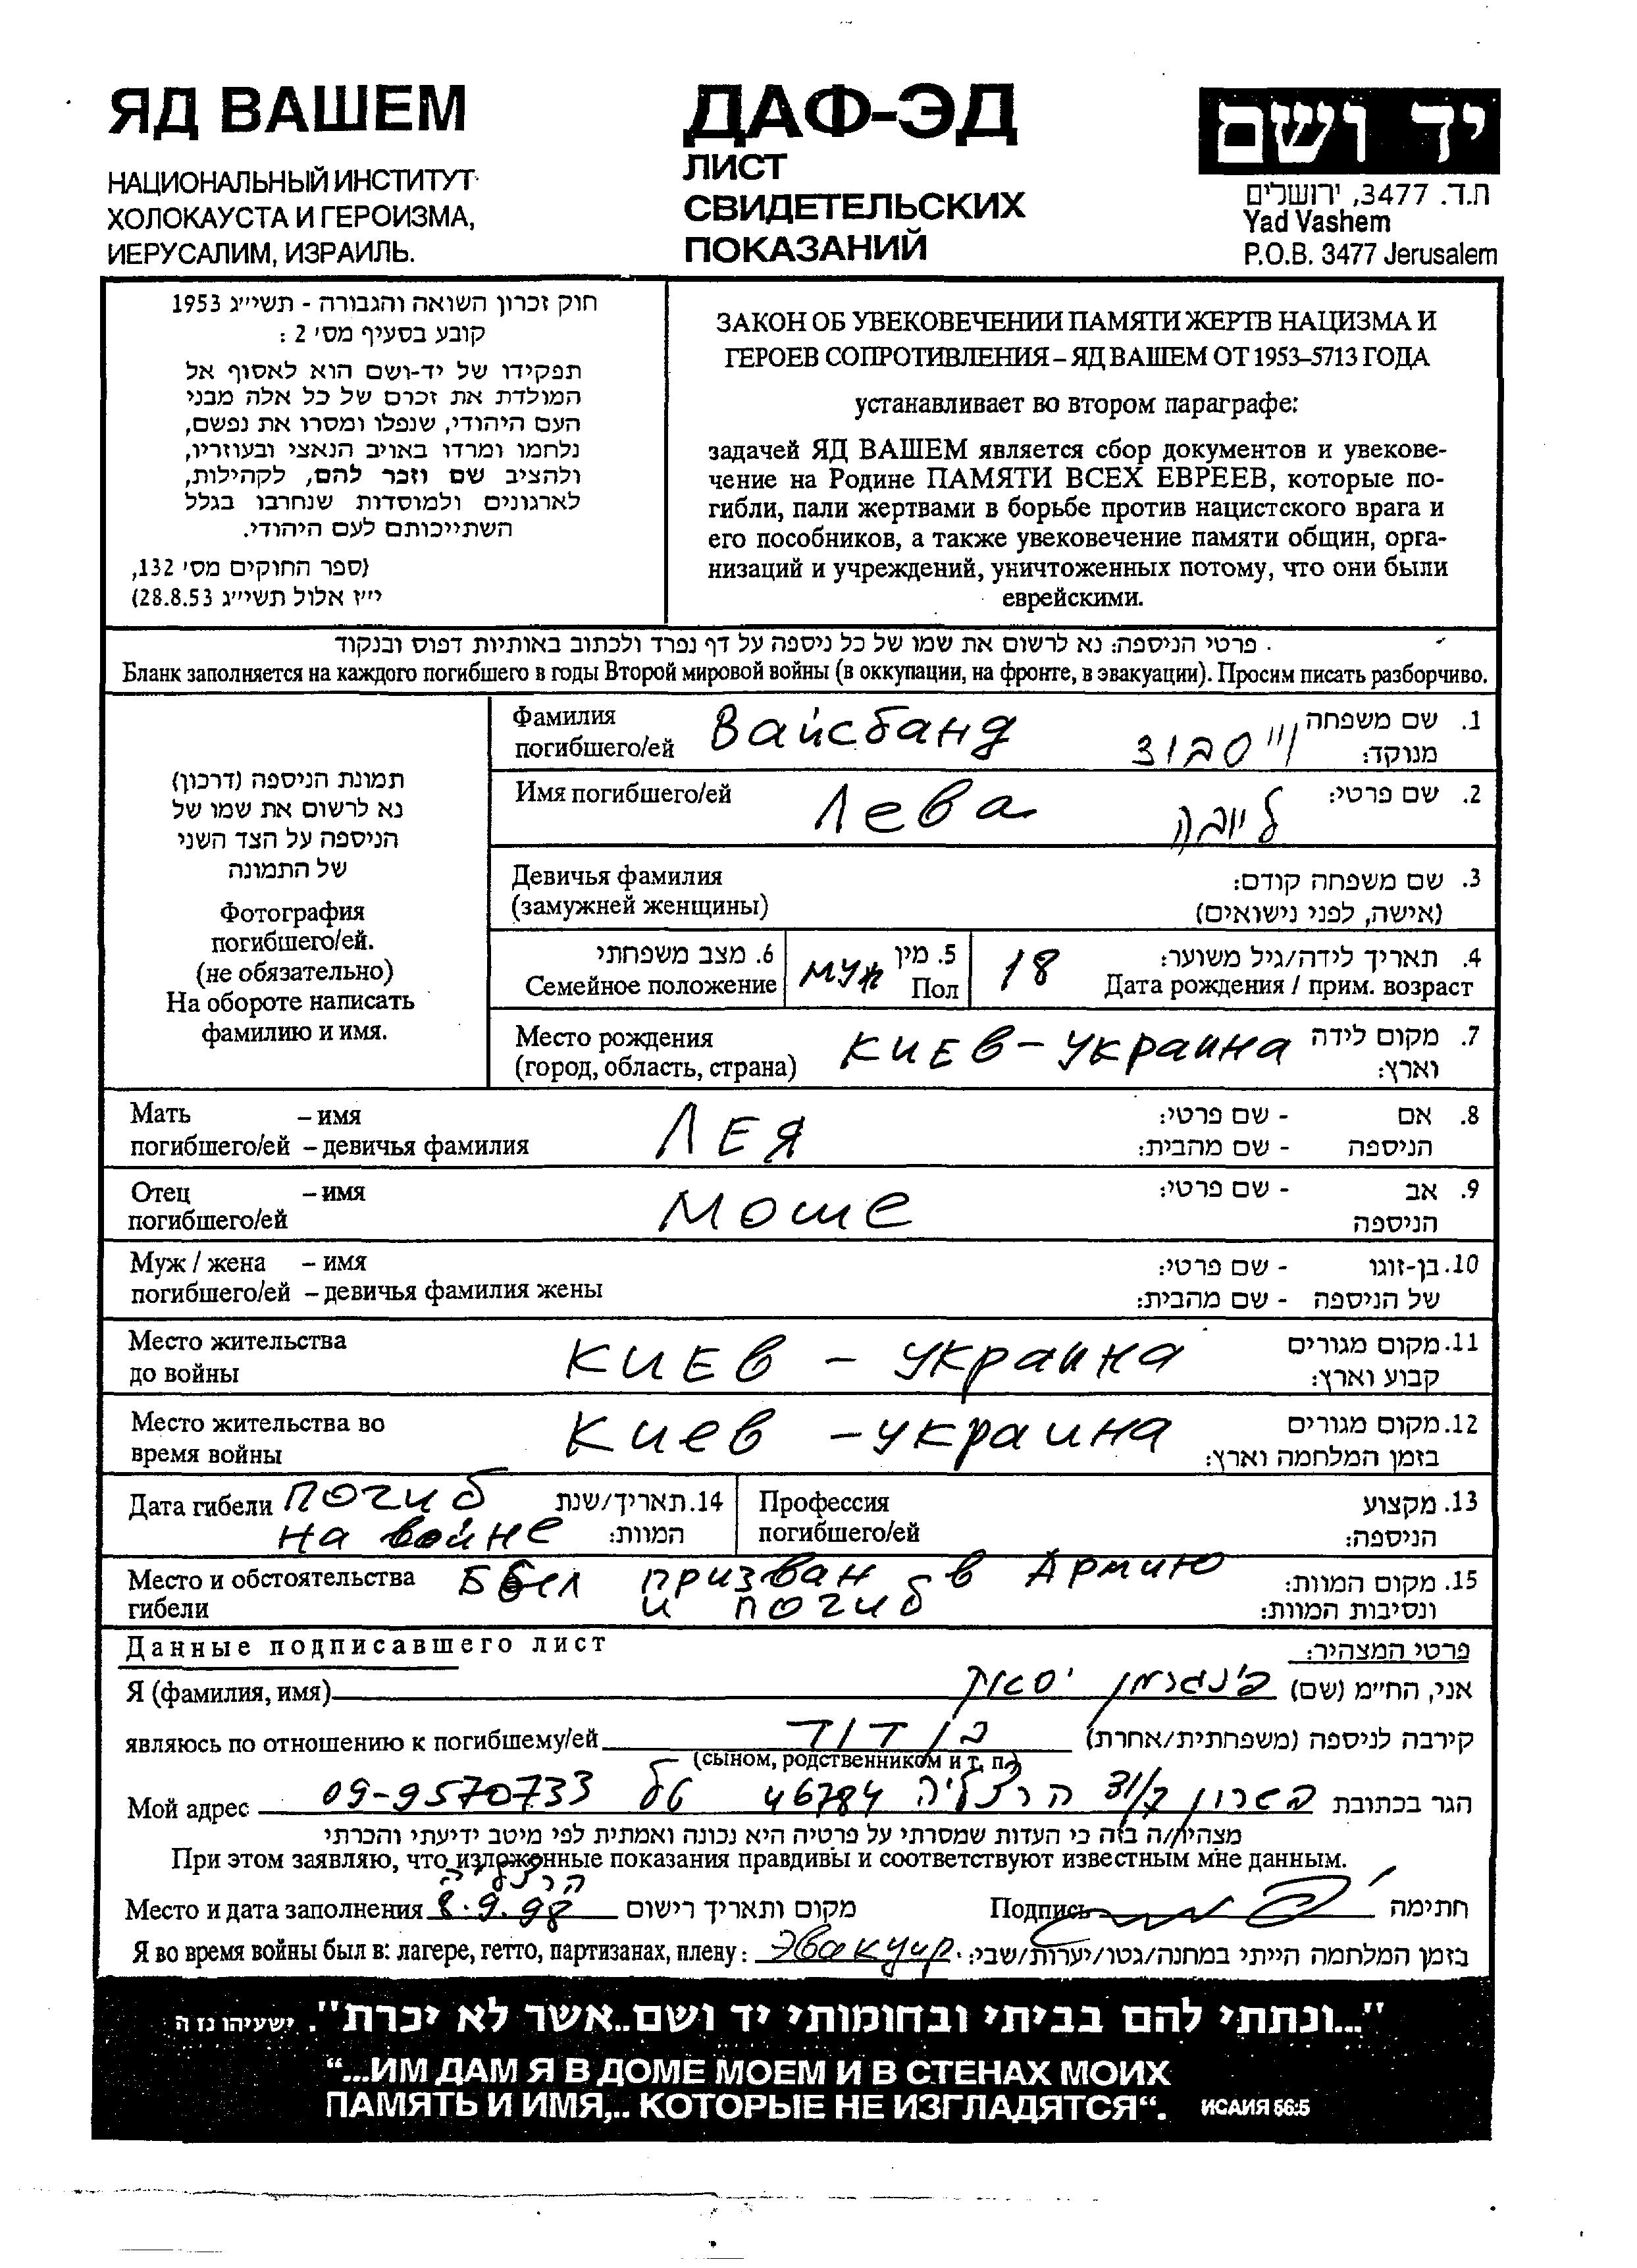 ЯД ВАШЕМ
НАЦИОНАЛЬНЫЙ ИНСТИТУТ
ХОЛОКАУСТА И ГЕРОИЗМА,
ИЕРУСАЛИМ, ИЗРАИЛЬ.
ДАФ-ЭД
ЛИСТ
СВИДЕТЕЛЬСКИХ
ПОКАЗАНИЙ
יד ושם
ת.ד. 3477, ירושלים
Yad Vashem
P.O.B. 3477 Jerusalem
חוק זכרון השואה והגבורה - תשי״ג 1953
קובע בסעיף מס׳ 2 :
תפקידו של יד-ושם הוא לאסוף אל
המולדת את זכרם של כל אלה מבני
העם היהודי, שנפלו ומסרו את נפשם,
נלחמו ומרדו באויב הנאצי ובעוזריו,
ולהציב שם וזכר להם, לקהילות,
לארגונים ולמוסדות שנחרבו בגלל
השתייכותם לעם היהודי.
(ספר החוקים מס׳ 132,
י״ז אלול תשי״ג 28.8.53)
ЗАКОН ОБ УВЕКОВЕЧЕНИИ ПАМЯТИ ЖЕРТВ НАЦИЗМА И
ГЕРОЕВ СОПРОТИВЛЕНИЯ – ЯД ВАШЕМ ОТ 1953–5713 ГОДА
устанавливает во втором параграфе:
задачей ЯД ВАШЕМ является сбор документов и увекове-
чение на Родине ПАМЯТИ ВСЕХ ЕВРЕЕВ, которые по-
гибли, пали жертвами в борьбе против нацистского врага и
его пособников, а также увековечение памяти общин, орга-
низаций и учреждений, уничтоженных потому, что они были
еврейскими.
פרטי הניספה: נא לרשום את שמו של כל ניספה על דף נפרד ולכתוב באותיות דפוס ובנקוד
Бланк заполняется на каждого погибшего в годы Второй мировой войны (в оккупации, на фронте, в эвакуации). Просим писать разборчиво.
תמונת הניספה (דרכון)
נא לרשום את שמו של
הניספה על הצד השני
של התמונה
Фотография
погибшего/ей.
(не обязательно)
На обороте написать
фамилию и имя.
Фамилия
погибшего/ей Вайсбанд
1. שם משפחה
מנוקד:
Имя погибшего/ей Лева ליובה 2. שם פרטי:
Девичья фамилия
(замужней женщины)
3. שם משפחה קודם:
(אישה, לפני נישואים)
6. מצב משפחתי
Семейное положение
5. מין
Пол муж
4. תאריך לידה/גיל משוער:
18 Дата рождения / прим. возраст
Место рождения
(город, область, страна) Киев - Украина
7. מקום לידה
וארץ:
Мать – имя
погибшего/ей – девичья фамилия
Лея
8. אם - שם פרטי:
הניספה - שם מהבית:
Отец – имя
погибшего/ей
Моше
9. אב - שם פרטי:
הניספה
Муж / жена – имя
погибшего/ей – девичья фамилия жены
10. בן-זוגו - שם פרטי:
של הניספה - שם מהבית:
Место жительства
до войны
Киев - Украина
11. מקום מגורים
קבוע וארץ:
Место жительства во
время войны
Киев - Украина
12. מקום מגורים
בזמן המלחמה וארץ:
Дата гибели погиб
на войне
14. תאריך/שנת
המוות:
Профессия
погибшего/ей
13. מקצוע
הניספה:
Место и обстоятельства
гибели
Был призван в Армию
и погиб
15. מקום המוות:
ונסיבות המוות:
Данные подписавшего лист
פרטי המצהיר:
Я (фамилия, имя) פינגרמן יסאק אני, החי״מ (שם)
являюсь по отношению к погибшему/ей בן דוד קירבה לניספה (משפחתית/אחרת)
(сыном, родственником и т. п.)
Мой адрес 09-9570733 טל 46784 הרצליה השרון הגר בכתובת
מצהיר/ה בזה כי העדות שמסרתי על פרטיה היא נכונה ואמתית לפי מיטב ידיעתי והכרתי
При этом заявляю, что изложенные показания правдивы и соответствуют известным мне данным.
הרצליה
Место и дата заполнения 8.9.98 מקום ותאריך רישום
Подпись חתימה
Я во время войны был в: лагере, гетто, партизанах, плену: Эвакуир. בזמן המלחמה הייתי במחנה/גטו/יערות/שבי:
"...ונתתי להם בביתי ובחומותי יד ושם..אשר לא יכרת". ישעיהו נז ה
“...ИМ ДАМ Я В ДОМЕ МОЕМ И В СТЕНАХ МОИХ
ПАМЯТЬ И ИМЯ,.. КОТОРЫЕ НЕ ИЗГЛАДЯТСЯ“. ИСАИЯ 56:5